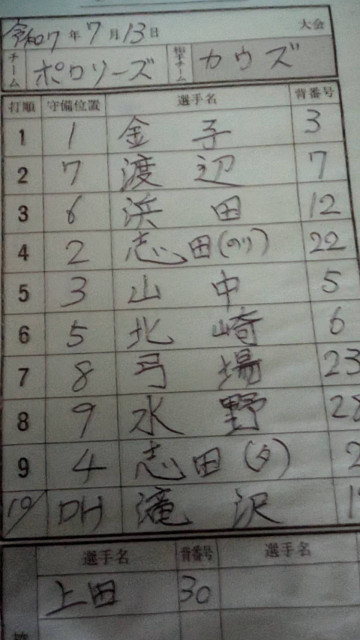 令和7年7月13日 大会
チーム ポロリーズ 対戦チーム カウズ
打順 守備位置 選手名 背番号
1 1 金子 3
2 7 渡辺 7
3 6 浜田 12
4 2 志田(のり) 22
5 3 山中 5
6 5 北崎 6
7 8 弓場 23
8 9 水野
9 4 志田(タ)
10 DH 滝沢
選手名 背番号 選手名
上田 30